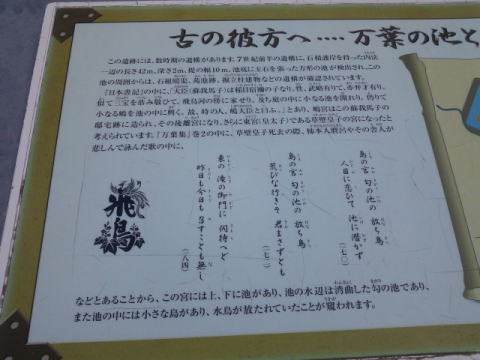 古の彼方へ ‥‥ 万葉の池と
この遺跡には、数時期の遺構があります。7世紀前半の遺構に、石積護岸を持った内法
一辺の長さ42m、深さ2m、堤の幅10m、池底に玉石を張った方形の池が検出され、この
池の周囲からは、石組暗渠、掘立柱建物などの遺構が確認されています。
『日本書紀』の中に、「大臣(蘇我馬子)は稲目宿禰の子なり。性、武略有りて、亦弁才有り。
似て三宝を恭み敬びて、飛鳥河の傍に家せり。乃ち庭の中に小なる池を開れり。仍りて
小なる嶋を池の中に興く。故、時の人、嶋大臣と曰ふ。」とあり、嶋宮はこの蘇我馬子の
邸宅跡に造られ、その後離宮になり、さらに東宮(皇太子)である草壁皇子の宮になったと
考えられています。『万葉集』巻2の中に、草壁皇子死去の際、柿本人麿呂やその舎人が
悲しんで詠んだ歌の中に、
島の宮 勾の池の 放ち鳥
人目に恋ひて 池に潜かず
(一七〇)
島の宮 勾の池の 放ち鳥
荒びな行きそ 君まさずとも
(一七二)
東の 滝の御門に 伺侍へど
昨日も今日も 召すことも無し
(一八四)
飛鳥
などとあることから、この宮には上、下に池があり、池の水辺は湾曲した勾の池であり、
また池の中には小さな島があり、水鳥が放たれていたことが窺われます。